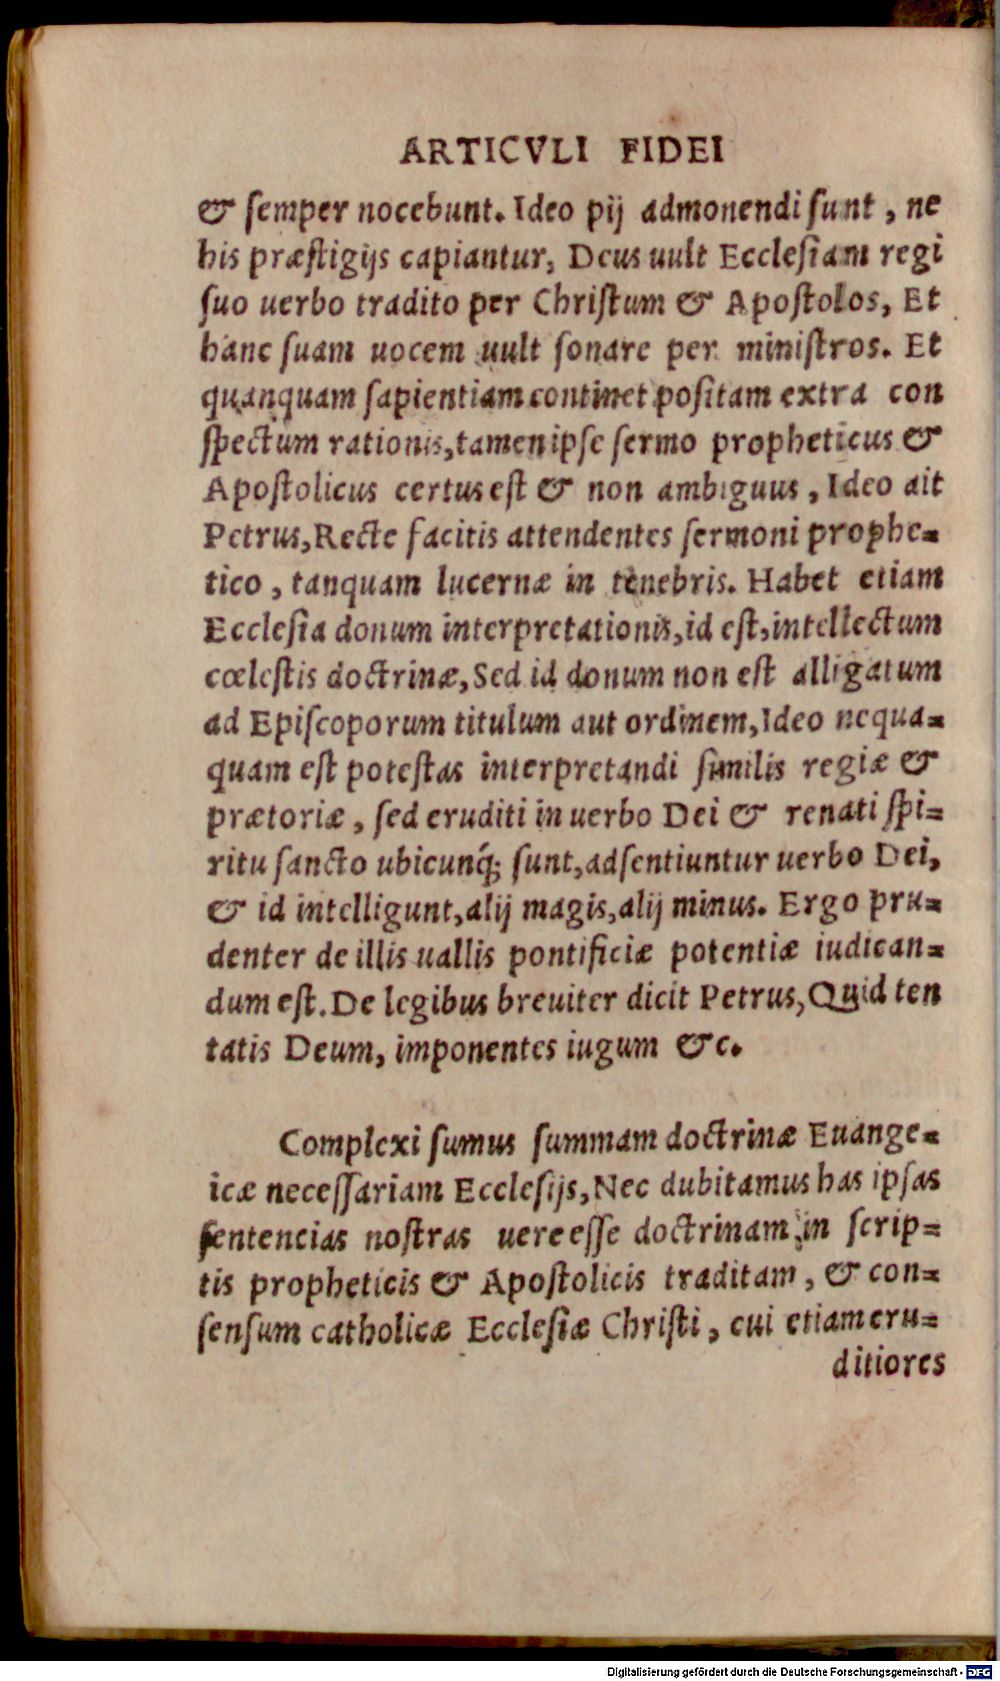 ARTICVLI FIDEI
& ſemper nocebunt. Ideo pij admonendi ſunt, ne
his præſtigijs capiantur, Deus uult Eccleſiam regi
ſuo uerbo tradito per Chriſtum & Apoſtolos, Et
hanc ſuam uocem uult ſonare per miniſtros. Et
quanquam ſapientiam continet poſitam extra con
ſpectum rationis, tamen ipſe ſermo propheticus &
Apoſtolicus certus eſt & non ambiguus, Ideo ait
Petrus, Recte facitis attendentes ſermoni prophe=
tico, tanquam lucernæ in tenebris. Habet etiam
Eccleſia donum interpretationis, id eſt, intellectum
cœleſtis doctrinæ, Sed id donum non eſt alligatum
ad Epiſcoporum titulum aut ordinem, Ideo nequa=
quam eſt poteſtas interpretandi ſimilis regiæ &
prætoriæ, ſed eruditi in uerbo Dei & renati ſpi=
ritu ſancto ubicunq́; ſunt, adſentiuntur uerbo Dei,
& id intelligunt, alij magis, alij minus. Ergo pru=
denter de illis uallis pontificiæ potentiæ iudican=
dum eſt. De legibus breuiter dicit Petrus, Quid ten
tatis Deum, imponentes iugum &c.
Complexi ſumus ſummam doctrinæ Euange=
icæ neceſſariam Eccleſijs, Nec dubitamus has ipſas
ſentencias noſtras uere eſſe doctrinam in ſcrip=
tis propheticis & Apoſtolicis traditam, & con=
ſenſum catholicæ Eccleſiæ Chriſti, cui etiam eru=
ditiores
Digitalisierung gefördert durch die Deutsche Forschungsgemeinschaft - DFG